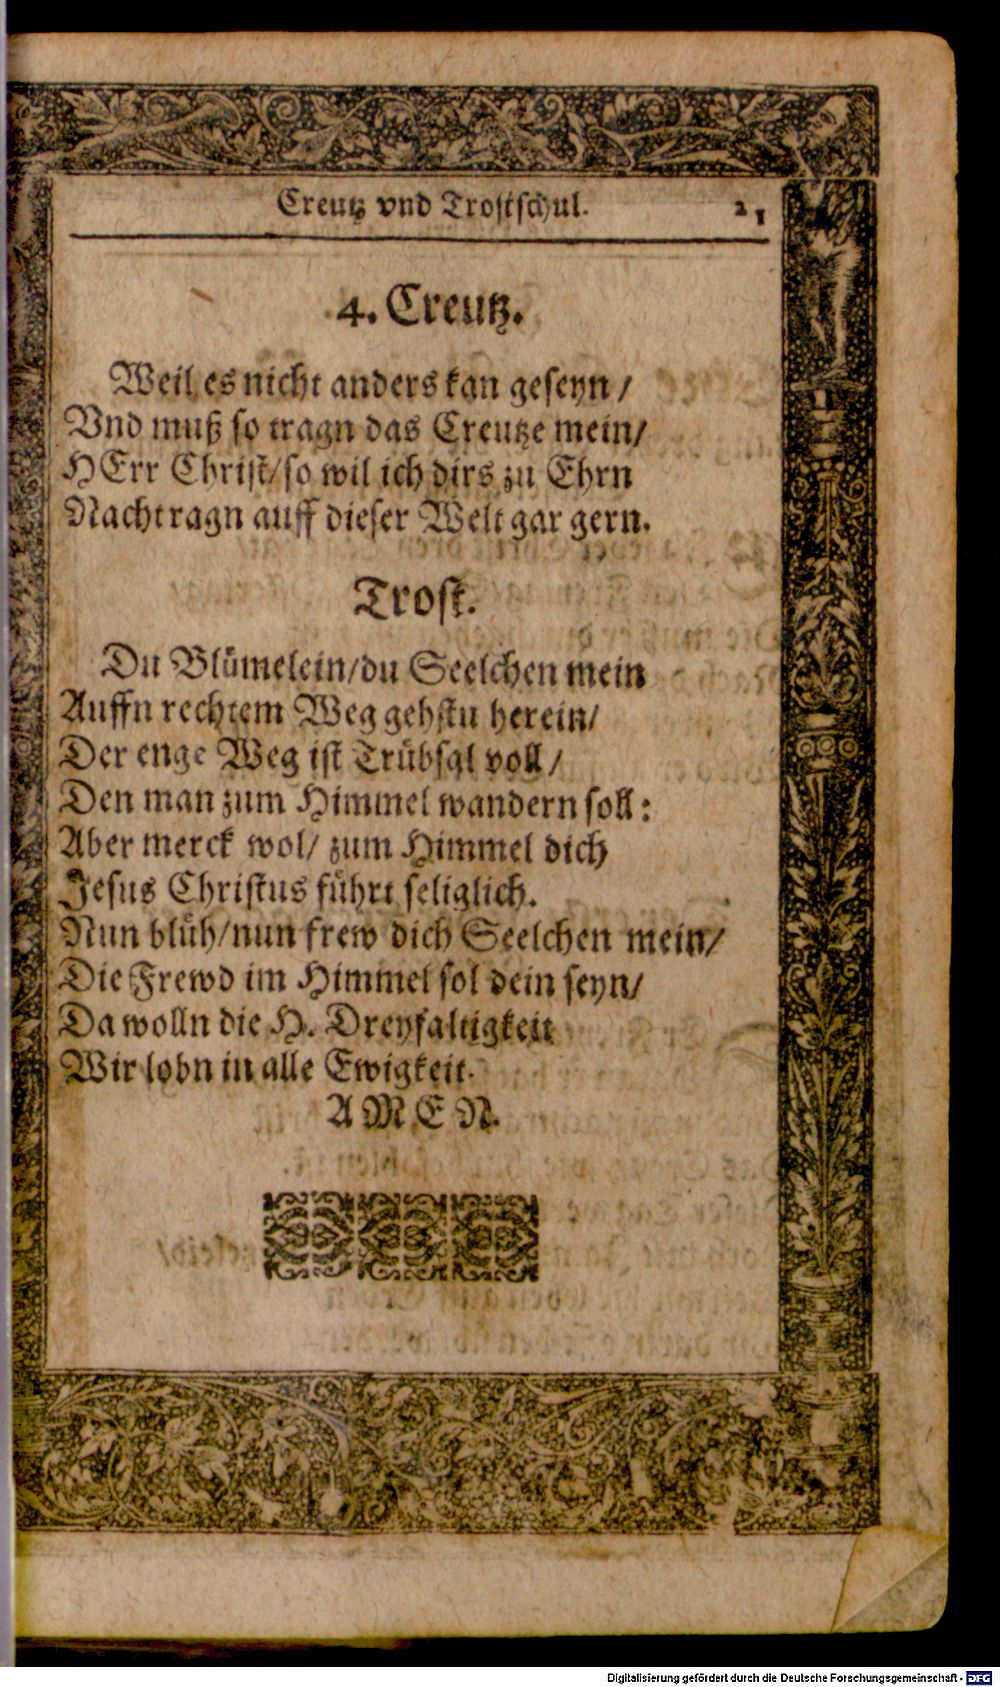 Creutz vnd Trostschul. 21
4. Creutz.
Weil es nicht anders kan geseyn /
Vnd muß so tragn das Creutze mein/
HErr Christ/so wil ich dirs zu Ehrn
Nachtragn auff dieser Welt gar gern.
Trost.
Du Blümelein/du Seelchen mein
Auffn rechtem Weg gehstu herein/
Der enge Weg ist Trübsal voll /
Den man zum Himmel wandern soll:
Aber merck wol/ zum Himmel dich
Jesus Christus führt seliglich.
Nun blüh/nun frew dich Seelchen mein/
Die Frewd im Himmel sol dein seyn/
Da wolln die H. Dreyfaltigkeit
Wir lobn in alle Ewigkeit.
AMEN.
Digitalisierung gefördert durch die Deutsche Forschungsgemeinschaft - DFG